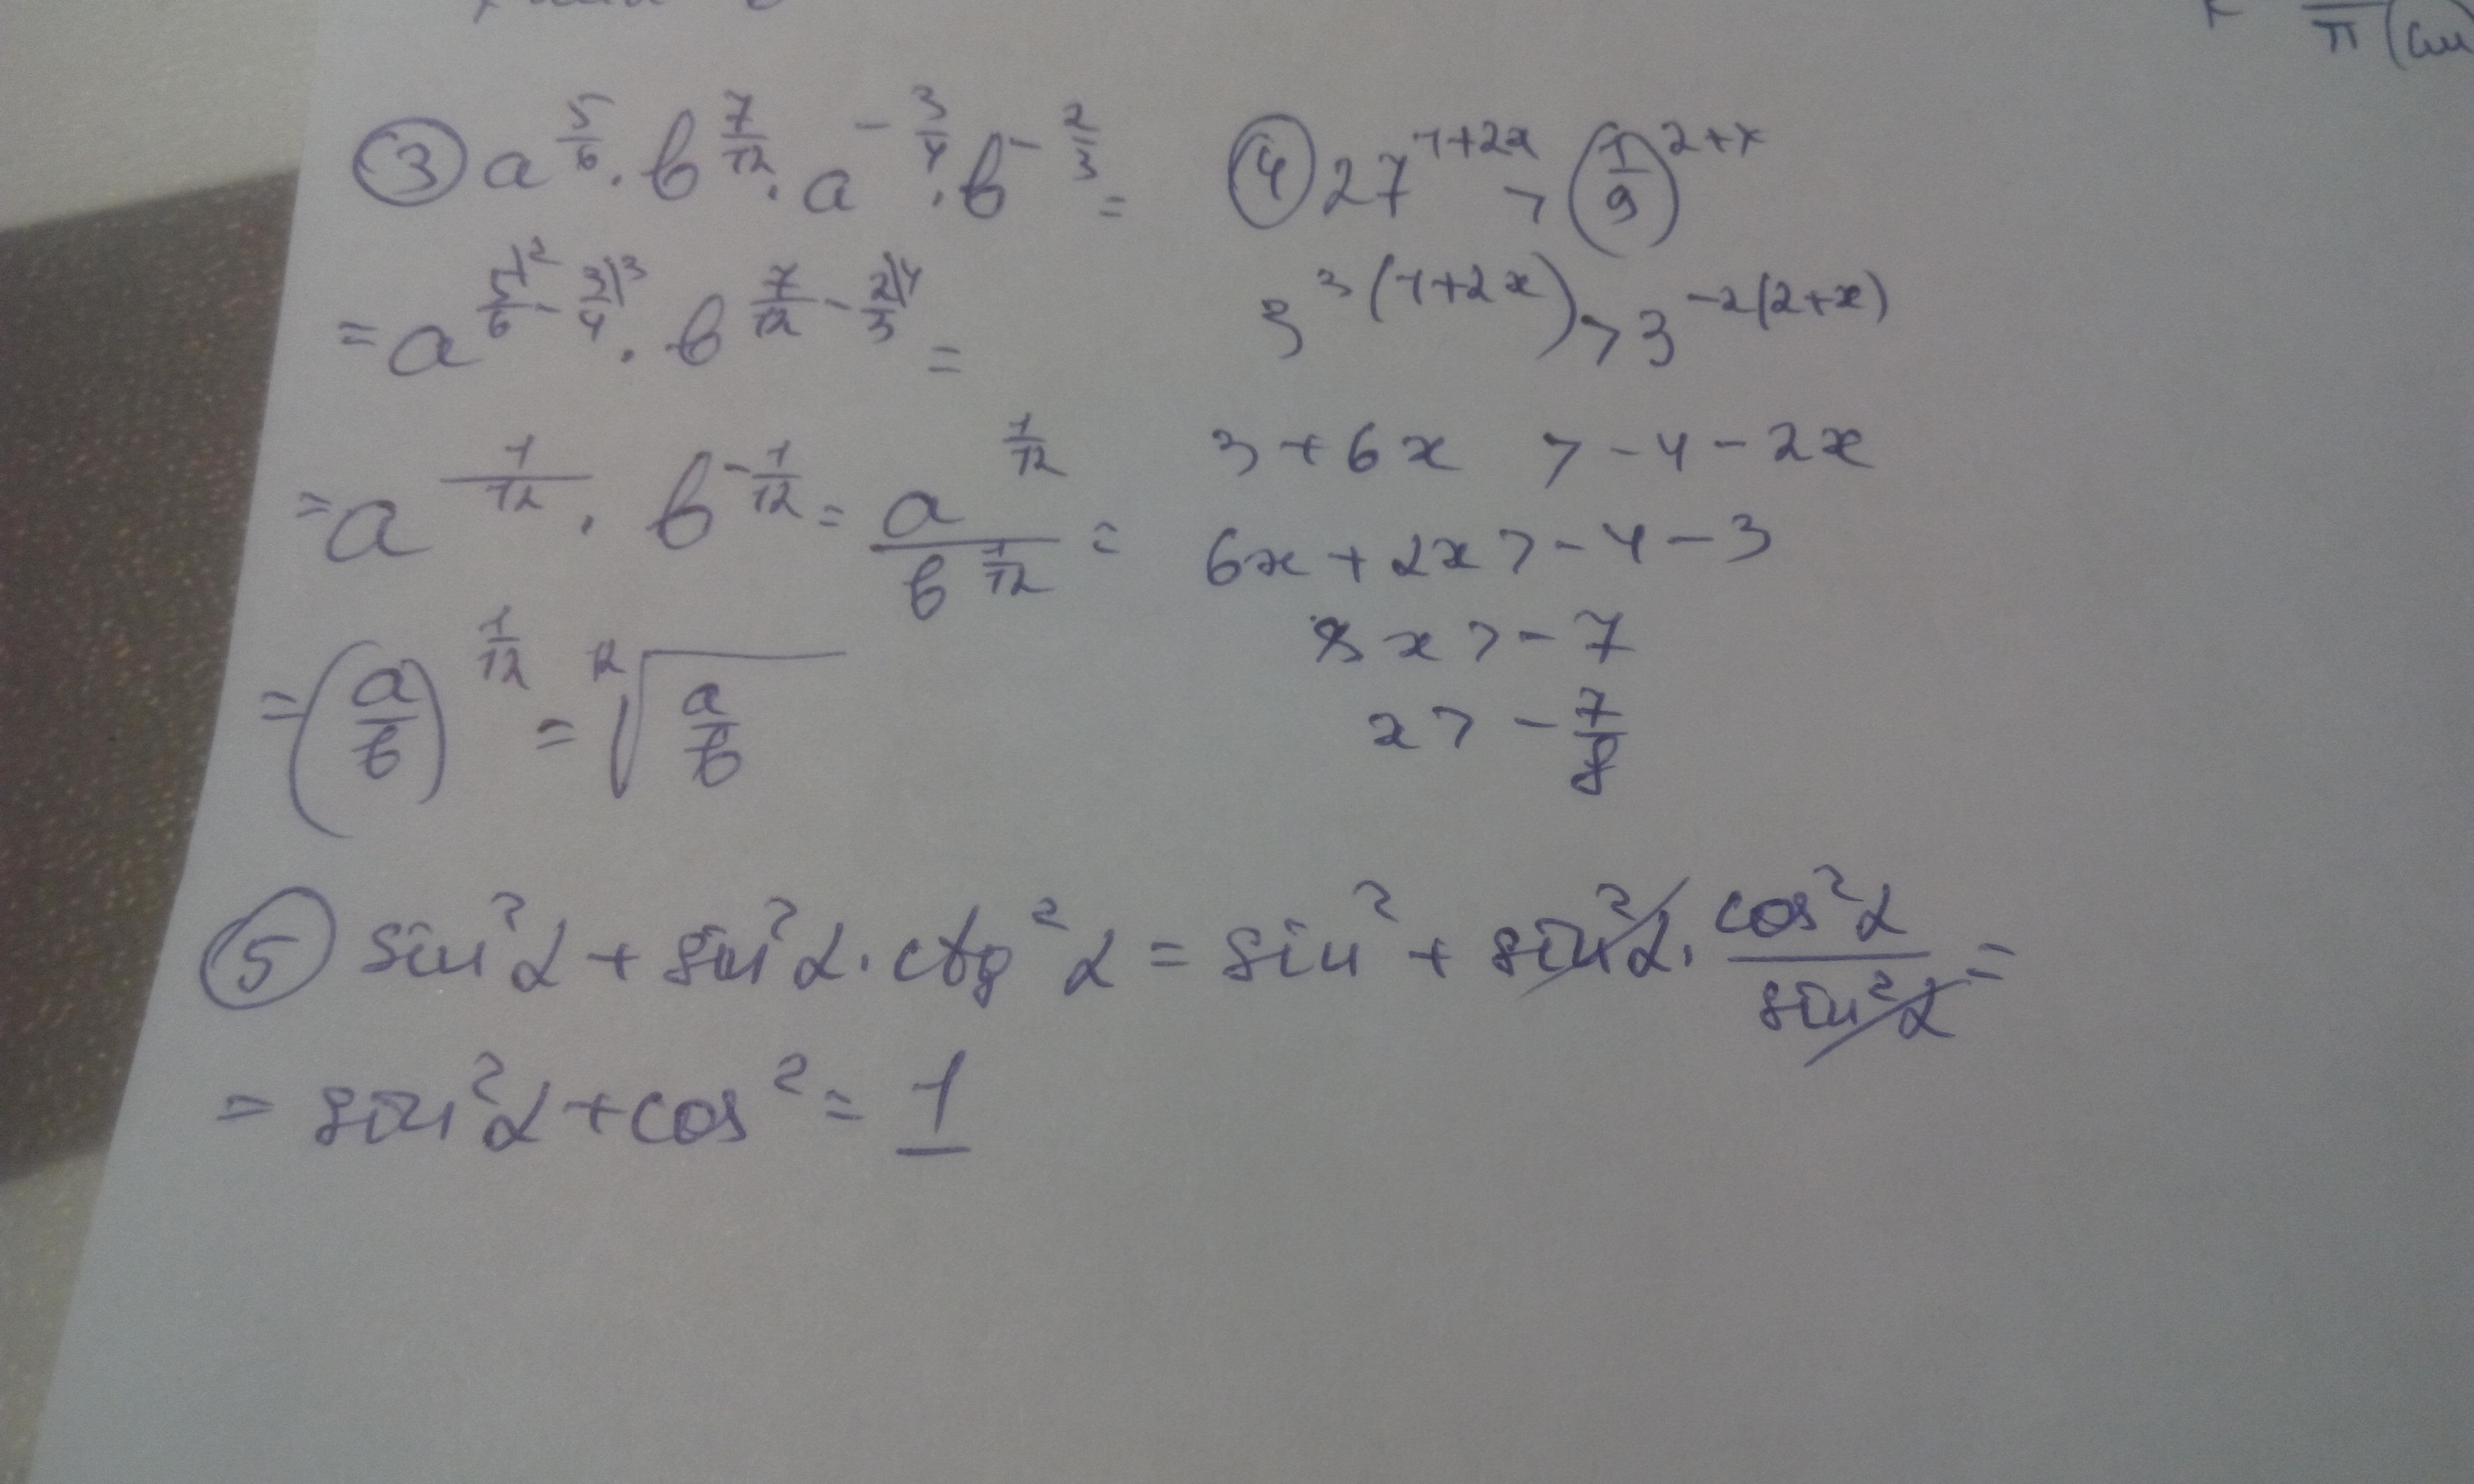 π (
③ a^{5/6} · b^{7/12} · a^{-3/4} · b^{-2/3} =
= a^{5/6|2 - 3/4|3} · b^{7/12 - 2/3|4} =
= a^{1/12} · b^{-1/12} = a^{1/12} / b^{1/12} =
= (a/b)^{1/12} = ¹²√(a/b)
④ 27^{1+2x} > (1/9)^{2+x}
3^{3(1+2x)} > 3^{-2(2+x)}
3 + 6x > -4 - 2x
6x + 2x > -4 - 3
8x > -7
x > -7/8
⑤ sin²α + sin²α · ctg²α = sin² + sin²α · cos²α / sin²α =
= sin²α + cos² = 1